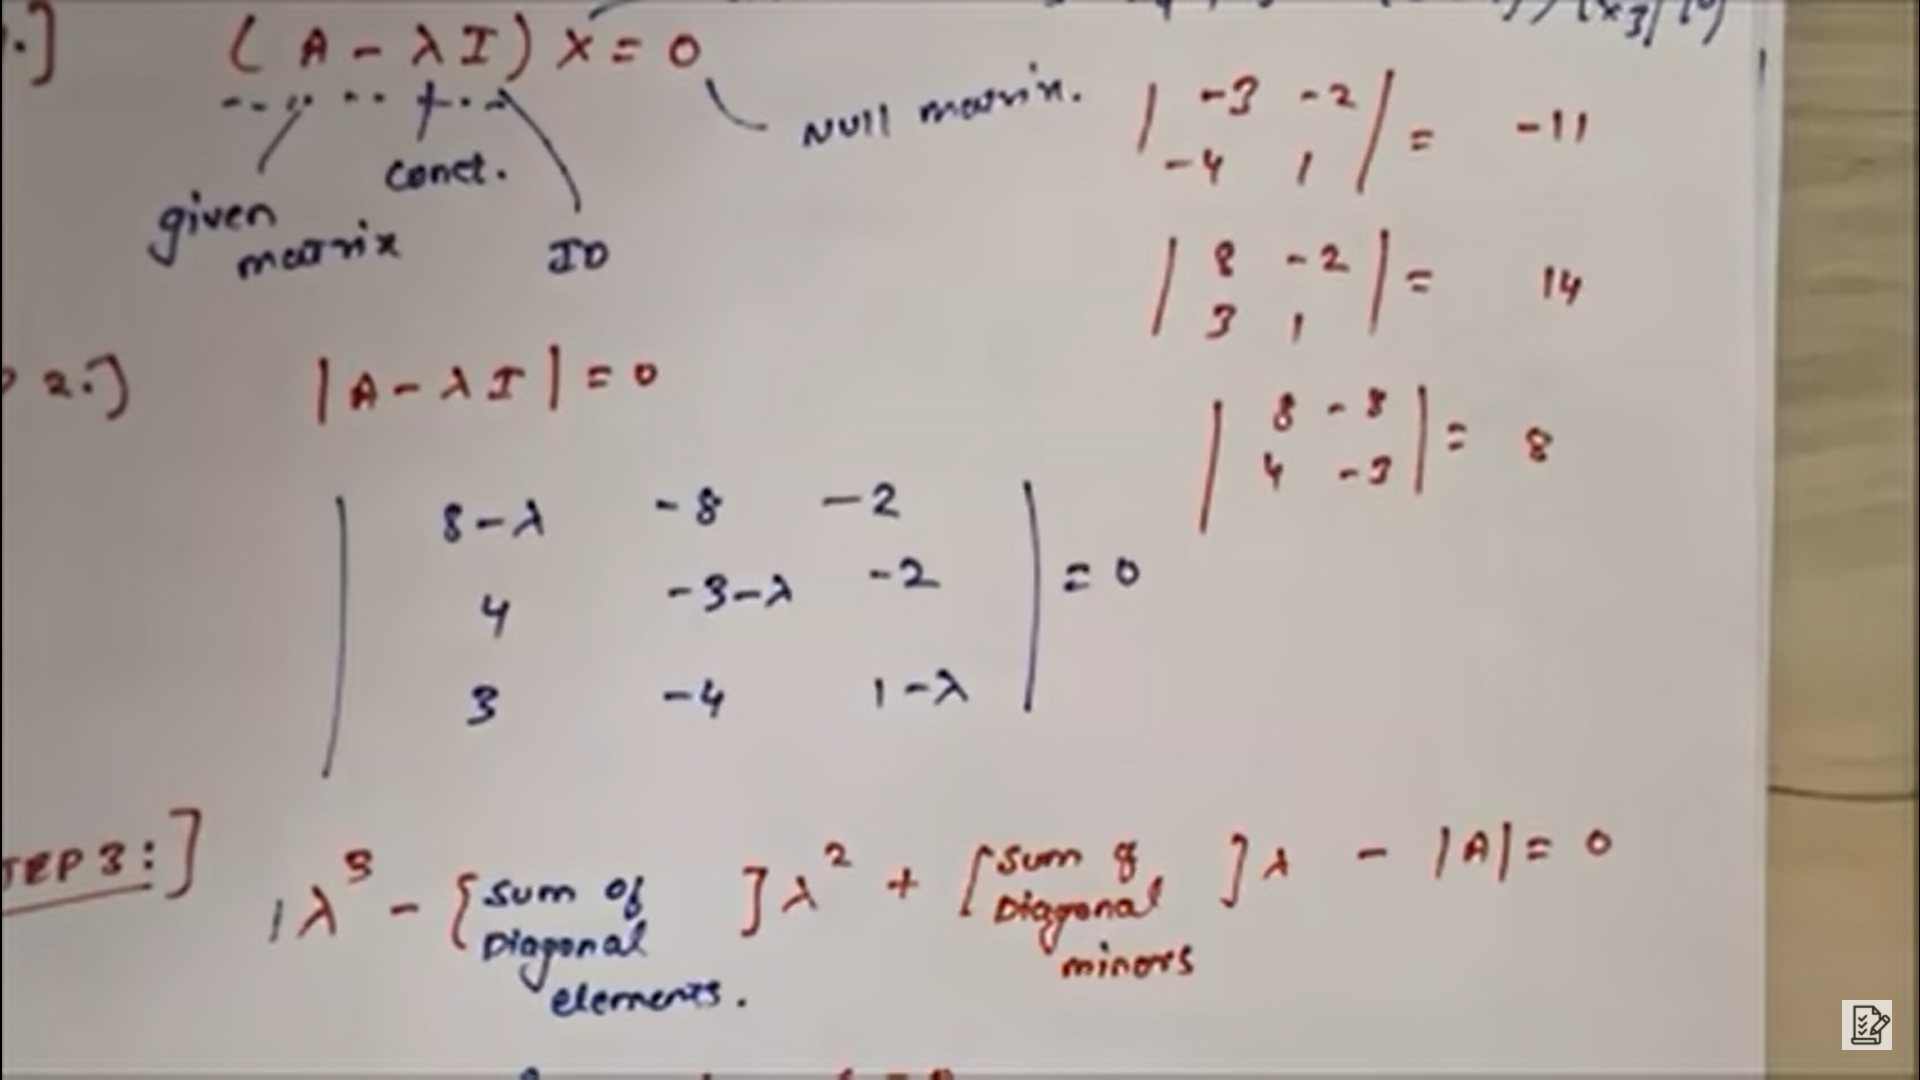 .]
( A - λ I ) X = 0
Null matrix.
const.
given
matrix
ID
| -3 -2 | = -11
-4 1
| 8 -2 | = 14
3 1
| 8 -8 | = 8
4 -3
2.)
| A - λ I | = 0
8-λ -8 -2
4 -3-λ -2 = 0
3 -4 1-λ
TEP 3:]
1λ³ - [sum of Diagonal elements. ] λ² + [sum of Diagonal minors ] λ - |A| = 0